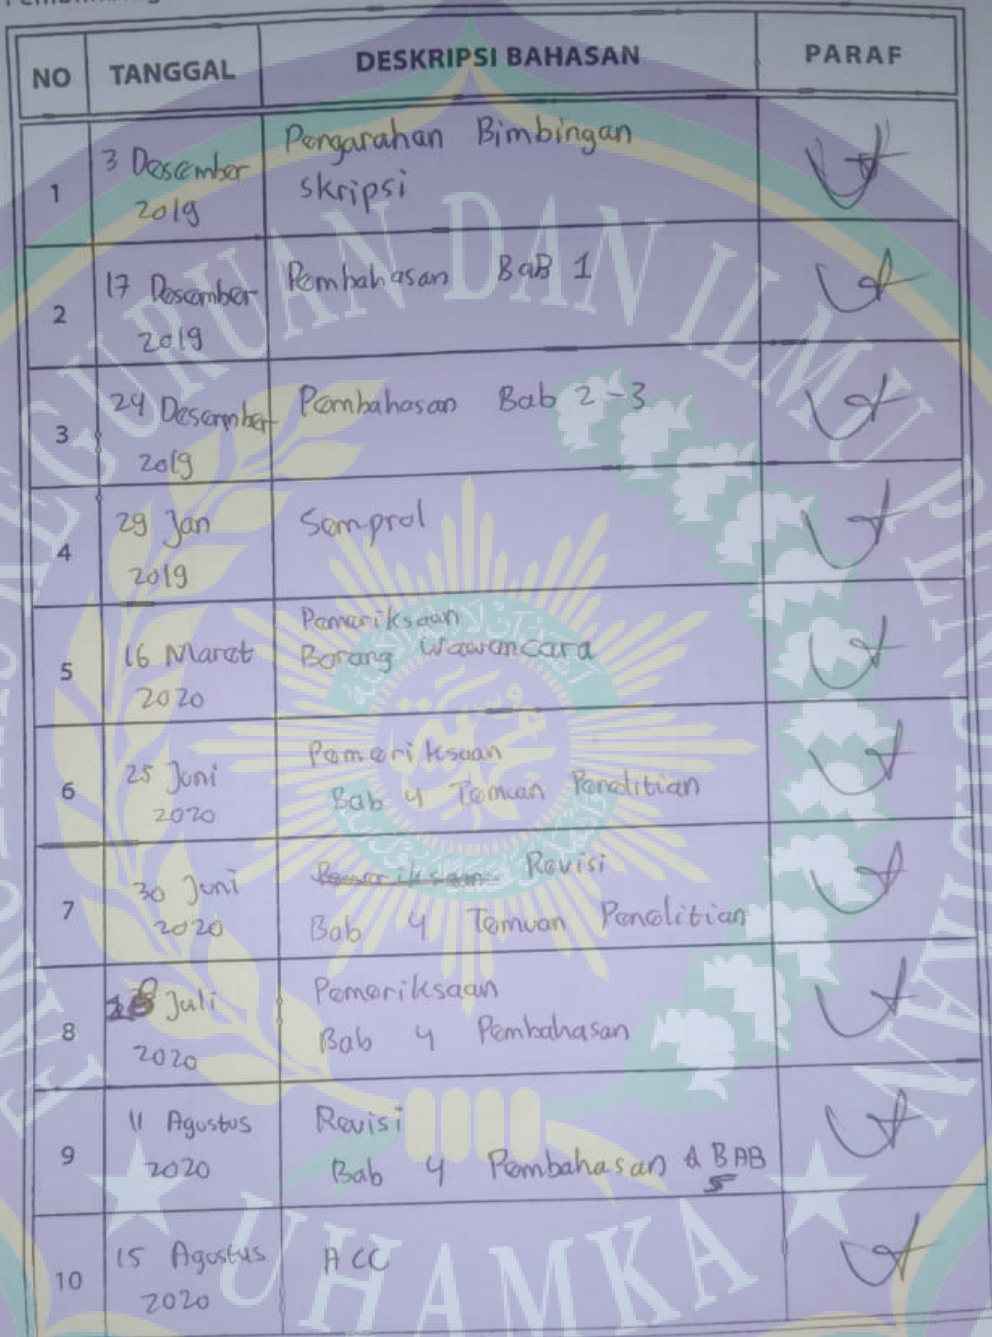 NO TANGGAL DESKRIPSI BAHASAN PARAF
1 3 Desember 2019 Pengarahan Bimbingan
skripsi
2 17 Desember 2019 Pembahasan BaB 1
3 24 Desember 2019 Pembahasan Bab 2-3
4 29 Jan 2019 Semprol
5 16 Maret 2020 Pemeriksaan
Borang Wawancara
6 25 Juni 2020 Pemeriksaan
Bab 4 Temuan Penelitian
7 30 Juni 2020 Revisi
Bab 4 Temuan Penelitian
8 Juli 2020 Pemeriksaan
Bab 4 Pembahasan
9 11 Agustus 2020 Revisi
Bab 4 Pembahasan & BAB 5
10 15 Agustus 2020 ACC
UHAMKA